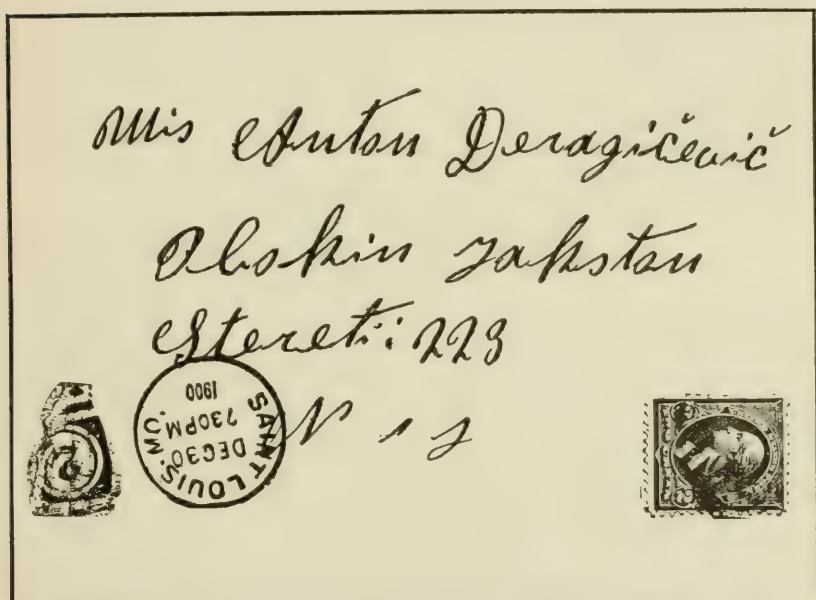 Mis Anton Deragičevič
Oboken Jakstan
Stereti: 223
N 1 J
SAINT LOUIS, MO.
DEC 30
730PM
1900
2